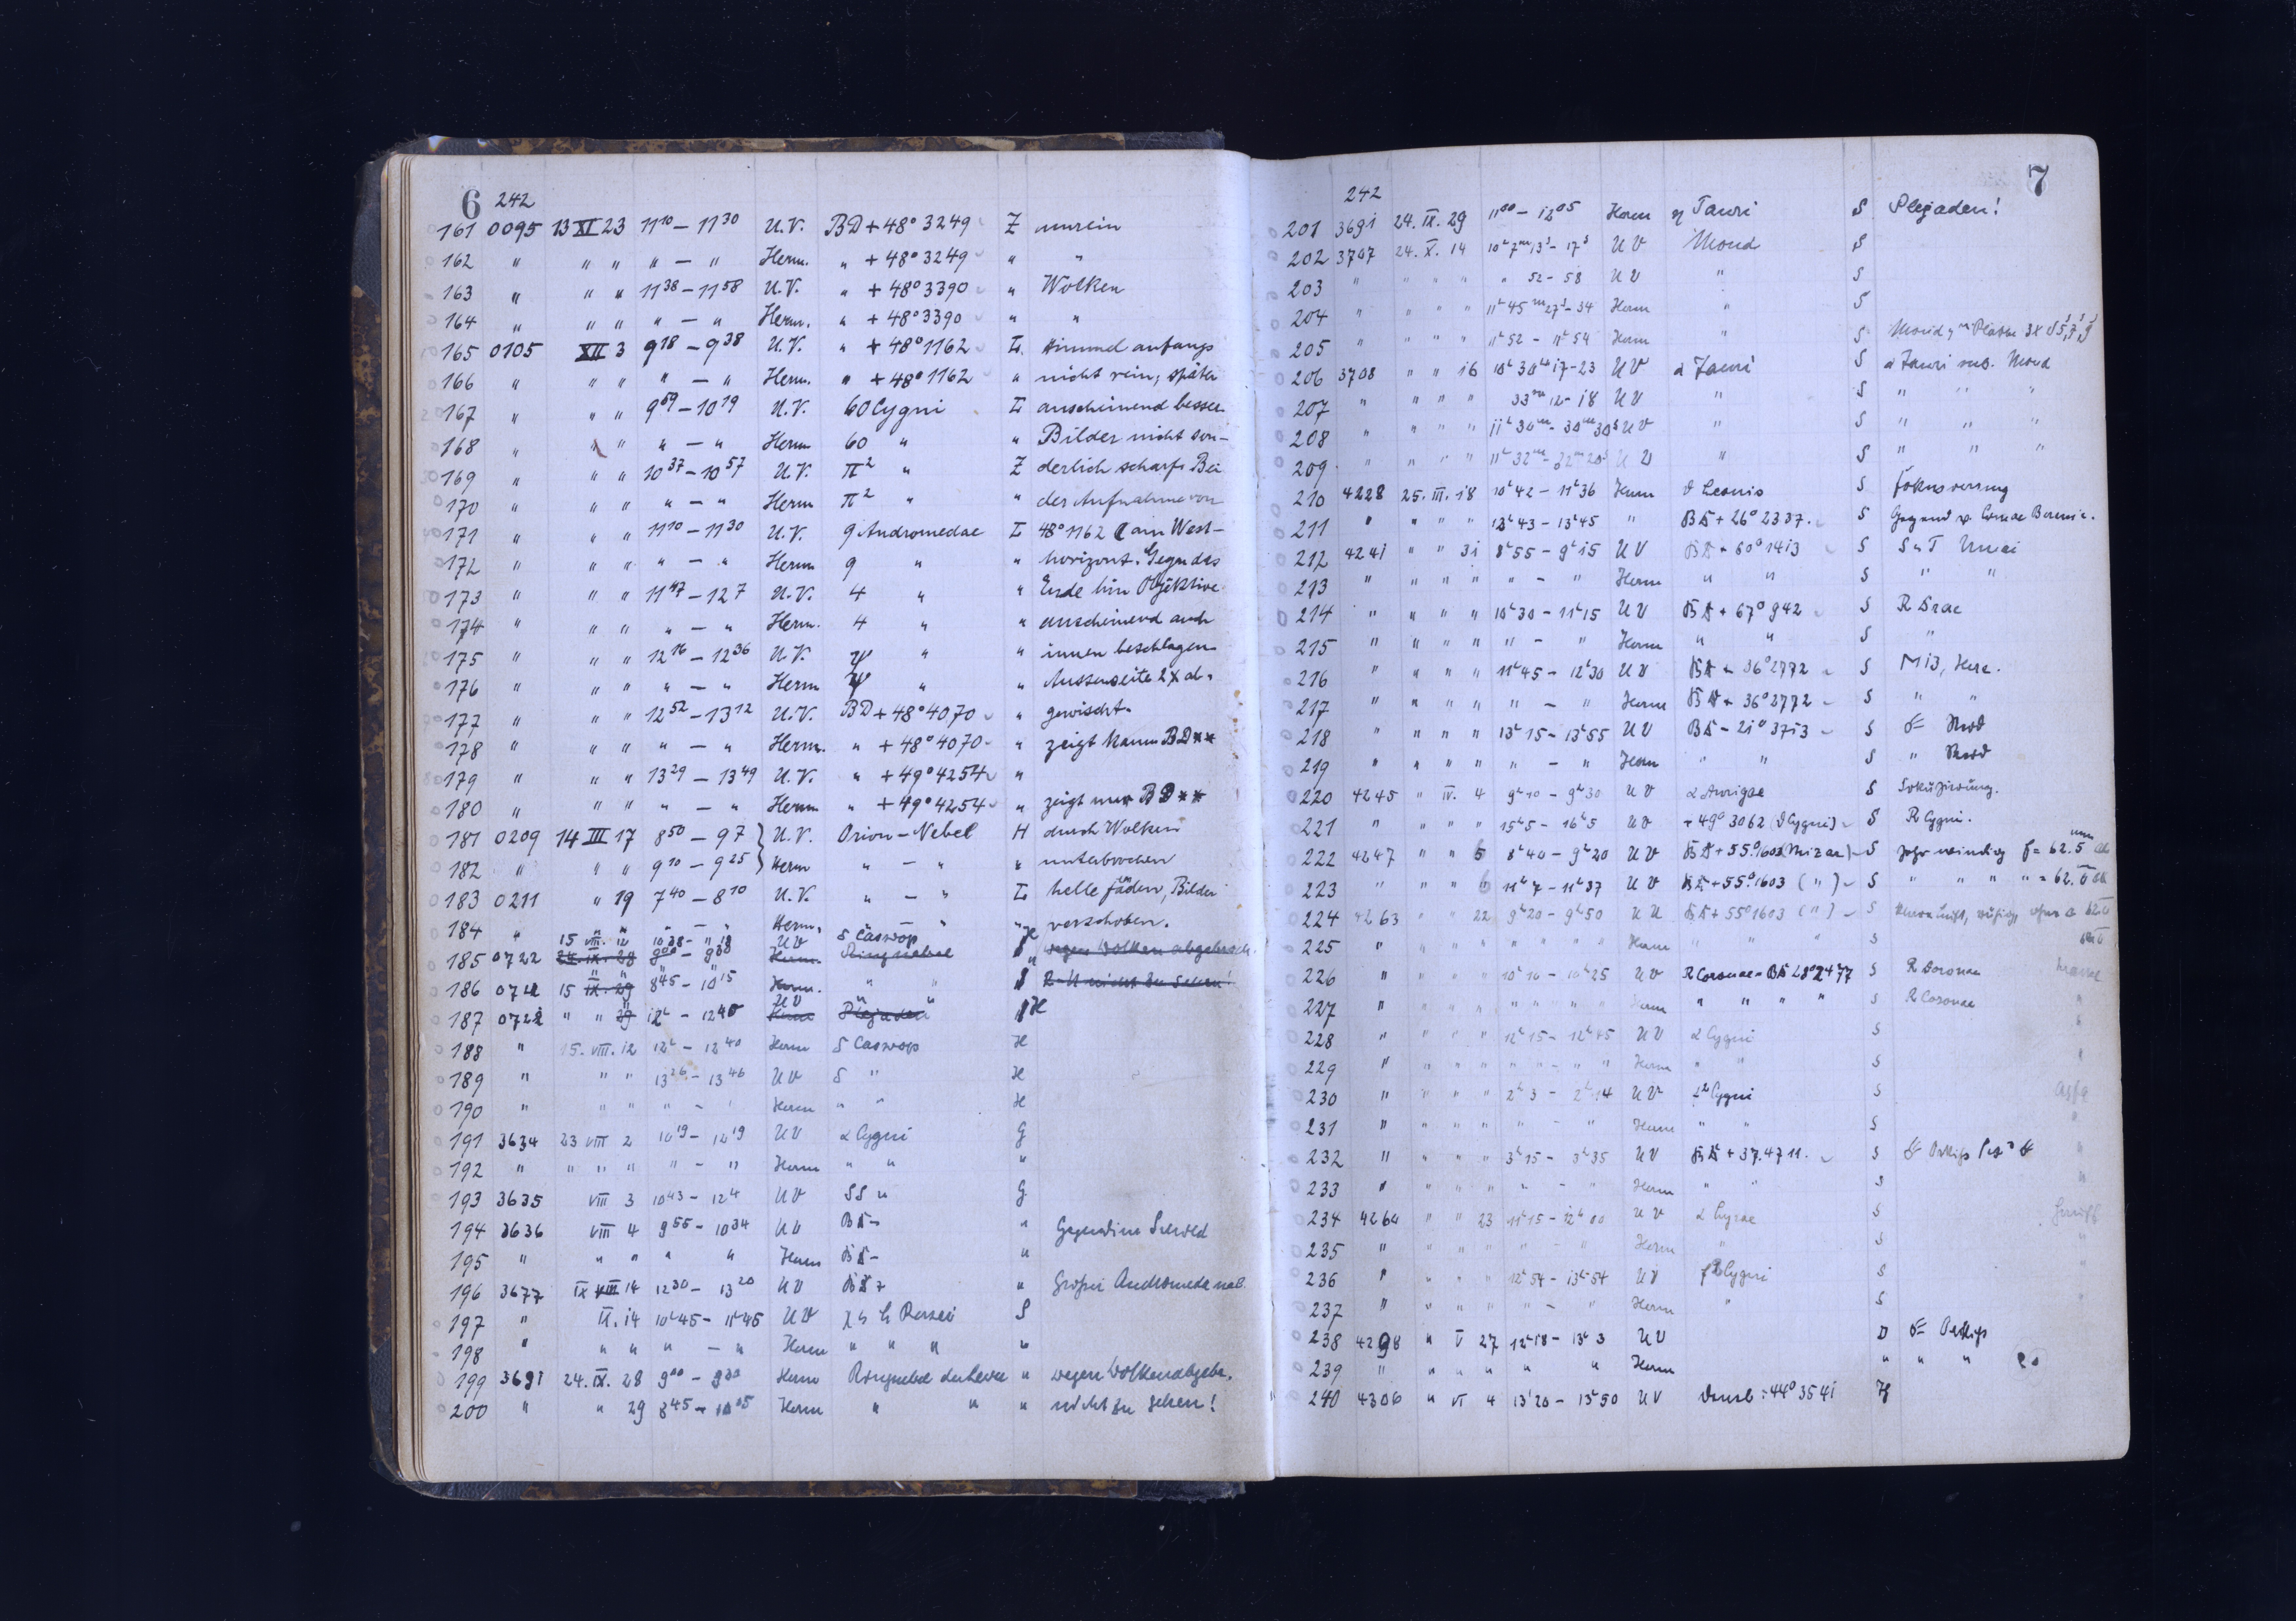 6 242
161 0095 13 XI 23 11 10 — 11 30 U.V. BD + 48° 3249 Z unrein
162 " " " " — " Herm. " + 48° 3249 " "
163 " " " 11 38 — 11 58 U.V. " + 48° 3390 " Wolken
164 " " " " — " Herm. " + 48° 3390 " "
165 0105 XII 3 9 18 — 9 38 U.V. " + 48° 1162 L. Himmel anfangs
166 " " " " — " Herm. " + 48° 1162 " nicht rein, später
167 " " " 9 59 — 10 19 U.V. 60 Cygni L anscheinend besser.
168 " " " " — " Herm 60 " " Bilder nicht son-
169 " " " 10 37 — 10 57 U.V. π² " Z derlich scharf. Bei
170 " " " " — " Herm π² " " der Aufnahme von
171 " " " 11 10 — 11 30 U.V. 9 Andromedae L 48° 1162 ☾ am West-
172 " " " " — " Herm 9 " " horizont. Gegen das
173 " " " 11 47 — 12 7 U.V. 4 " " Ende hin Objektive
174 " " " " — " Herm. 4 " " anscheinend auch
175 " " " 12 16 — 12 36 U.V. ψ " " innen beschlagen.
176 " " " " — " Herm ψ " " Aussenseite 2x ab-
177 " " " 12 52 — 13 12 U.V. BD + 48° 4070 " gewischt.
178 " " " " — " Herm. " + 48° 4070 " zeigt kaum BD **
179 " " " 13 29 — 13 49 U.V. " + 49° 4254 "
180 " " " " — " Herm " + 49° 4254 " zeigt nur BD **
181 0209 14 III 17 8 50 — 9 7 } U.V. Orion-Nebel H durch Wolken
182 " " " 9 10 — 9 25 } Herm " — " " unterbrochen
183 0211 " 19 7 40 — 8 10 U.V. " — " L helle Fäden, Bilder
184 " " " " — " Herm. " — " " verschoben.
15 VIII. 12 10 38 - 11 18 UV δ Cassiop H
185 0722 24. IX. 28 9 00 - 9 30 Herm. Ringnebel wegen Wolken abgebroch.
186 0722 15 IX. 29 8 45 - 10 15 Herm. " " S nicht zu sehen!
187 0722 " " 29 12 h - 12 40 UV Herm Plejaden H
188 " 15. VIII. 12 12 h - 12 40 Herm δ Cassiop H
189 " " " 13 26 - 13 46 UV δ " H
190 " " " " - " Herm " " H
191 3634 23 VIII 2 10 19 - 12 19 UV α Cygni G
192 " " " " " - " Herm " " "
193 3635 VIII 3 10 43 - 12 4 UV SS " G
194 3636 VIII 4 9 55 - 10 34 UV BD - "
195 " " " " " Herm BD - "
196 3677 IX VIII 14 12 30 - 13 20 UV BD + " Großer Andromedaneb.
197 " IX. 14 10 h 45 - 11 h 45 UV χ h Persei S
198 " " " " — " Herm " " " "
199 3691 24. IX. 28 9 00 - 9 30 Herm Ringnebel der Leier " wegen Wolken abgebr.
200 " " 29 8 45 - 10 05 Herm " " " nicht zu sehen!
7
242
201 3691 24. IX. 29 11 00 - 12 05 Herm η Tauri S Plejaden!
202 3707 24. X. 14 10 h 7 m 13 s - 17 s UV Mond S
203 " " " " " 52 - 58 UV " S
204 " " " " 11 h 45 m 27 s - 34 Herm " S
205 " " " " 11 h 52 - 11 h 54 Herm " S
206 3708 " " 16 10 h 30 m 17 - 23 UV α Tauri S α Tauri u. Mond
207 " " " " 33 m 12 - 18 UV " S " " "
208 " " " " 11 h 30 m - 30 m 30 s UV " S " " "
209 " " " " 11 h 32 m - 32 m 20 s UV " S " " "
210 4228 25. III. 18 10 h 42 - 11 h 36 Herm ϑ Leonis S
211 " " " " 12 h 43 - 13 h 45 " BD + 26° 2337. S Gegend v. Comae Berenic.
212 4241 " " 31 8 h 55 - 9 h 15 UV BD + 60° 1413 S S u T
213 " " " " " - " Herm " " S " "
214 " " " " 10 h 30 - 11 h 15 UV BD + 67° 942 S R Drac
215 " " " " " - " Herm " " S "
216 " " " " 11 h 45 - 12 h 30 UV BD + 36° 2772 S M13, Herc.
217 " " " " " - " Herm BD + 36° 2772 S " "
218 " " " " 13 h 15 - 13 h 55 UV BD - 21° 3713 S
219 " " " " " - " Herm " " S "
220 4245 " IV. 4 9 h 10 - 9 h 30 UV α Aurigae S Fokussierung.
221 " " " " 15 h 5 - 16 h 5 UV + 49° 3062 (ϑ Cygni) S R Cygni.
222 4247 " " 6 8 h 40 - 9 h 20 UV BD + 55° 1603 (Mizar) S sehr windig f = 62.5 mm
223 " " " 6 11 h 7 - 11 h 37 UV BD + 55° 1603 (") S " " " " = 62.0
224 4263 " " 22 9 h 20 - 9 h 50 UV BD + 55° 1603 (") S
225 " " " " " " " Herm " " " S
226 " " " " 10 h 10 - 10 h 25 UV R Coronae = BD 28° 2477 S R Coronae
227 " " " " " " " Herm " " " " S R Coronae
228 " " " " 12 h 15 - 12 h 45 UV α Cygni S
229 " " " " " - " Herm " " S
230 " " " " 2 h 3 - 2 h 14 UV Cygni S
231 " " " " " - " Herm " " S
232 " " " " 3 h 15 - 3 h 35 UV BD + 37.4711. S
233 " " " " " - " Herm " " S
234 4264 " " 23 11 h 15 - 12 h 00 UV α Lyrae S
235 " " " " " - " Herm " S
236 " " " " 12 h 54 - 13 h 54 UV Cygni S
237 " " " " " - " Herm " S
238 4298 " V 27 12 h 18 - 13 h 3 UV D
239 " " " " " " Herm " " "
240 4306 " VI 4 13 h 20 - 13 h 50 UV Deneb = 44° 3541 H